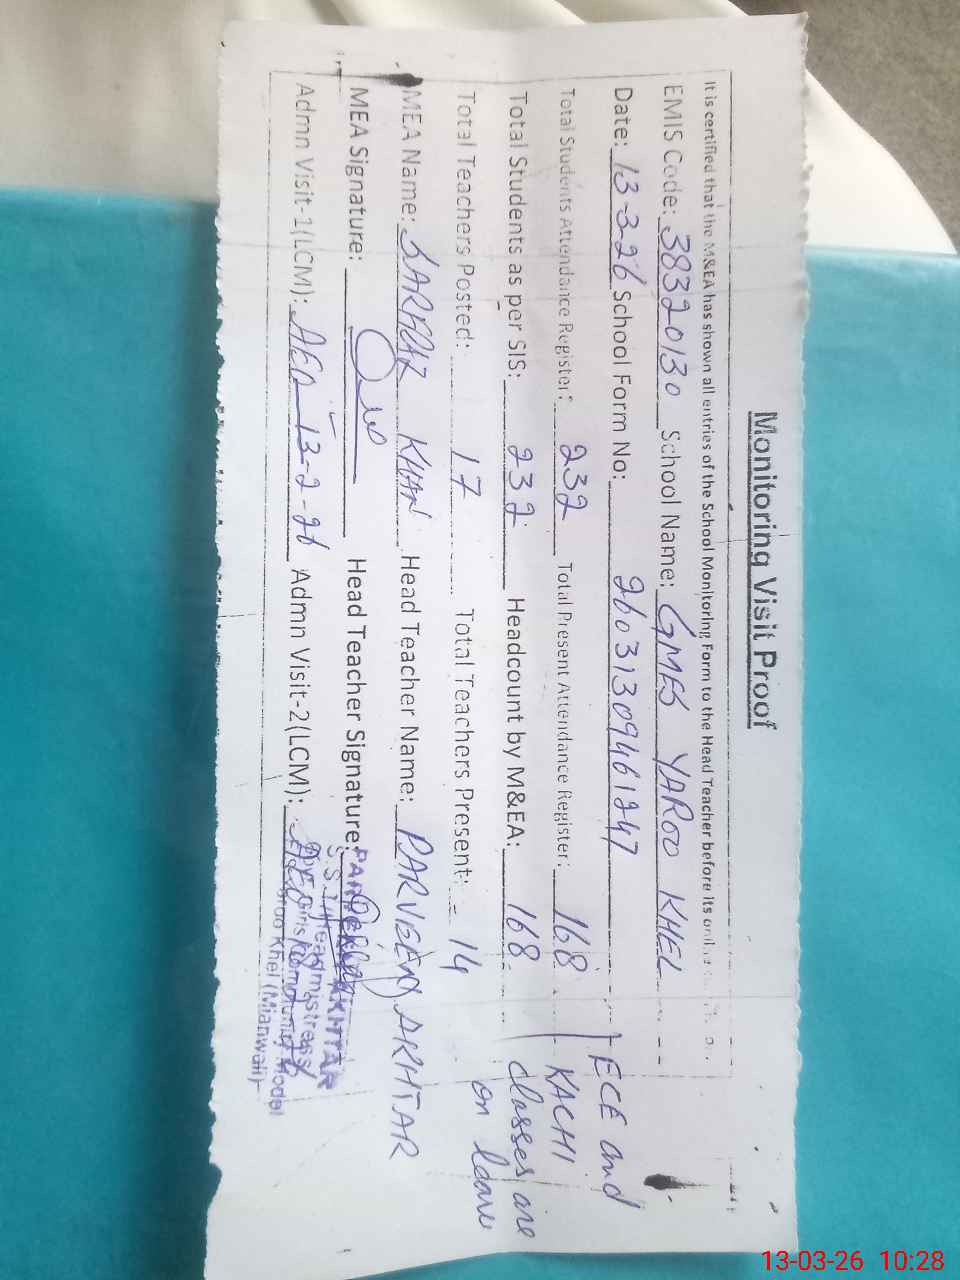 Monitoring Visit Proof
It is certified that the M&EA has shown all entries of the School Monitoring Form to the Head Teacher before its
EMIS Code: 38320130 School Name: GMES YAROO KHEL
Date: 13-3-26 School Form No: 26031309461247
Total Students Attendance Register: 232 Total Present Attendance Register: 168
Total Students as per SIS: 232 Headcount by M&EA: 168
Total Teachers Posted: 17 Total Teachers Present: 14
ECE and
KACHI
classes are
on leave
MEA Name: SARFRAZ KHAN Head Teacher Name: PARVEEN AKHTAR
MEA Signature: Head Teacher Signature:
Admn Visit-1(LCM): AEO 13-2-26 Admn Visit-2(LCM):
AKHTAR
S.S.T Headmistress
Govt Girls Community Model
Khel (Mianwali)
13-03-26 10:28